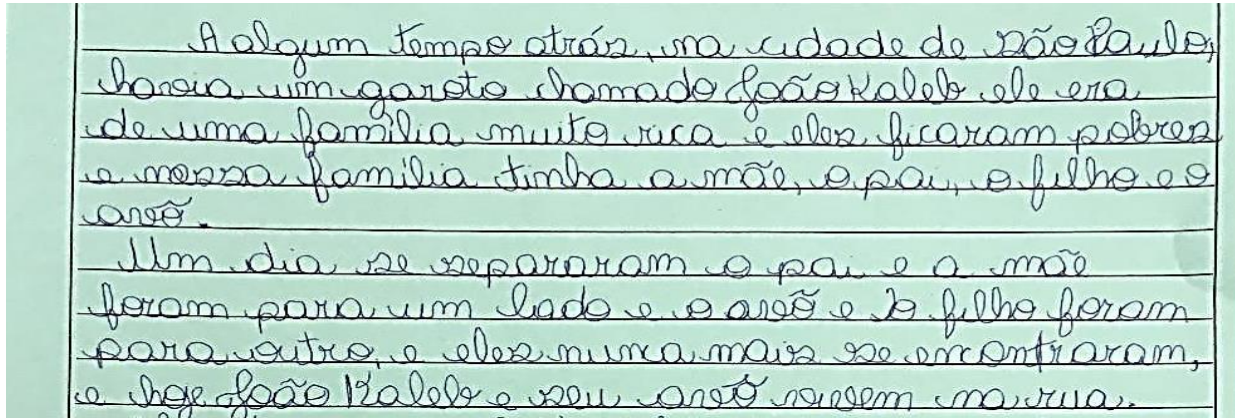 A algum tempo atrás, na cidade de São Paulo,
havia um garoto chamado João Kaleb ele era
de uma família muito rica e eles ficaram pobres
e nessa família tinha a mãe, o pai, o filho e o
avõ.
Um dia se separaram o pai e a mãe
foram para um lado e o avõ e o filho foram
para outro, e eles nunca mais se encontraram,
e hoje João Kaleb e seu avõ vivem na rua.